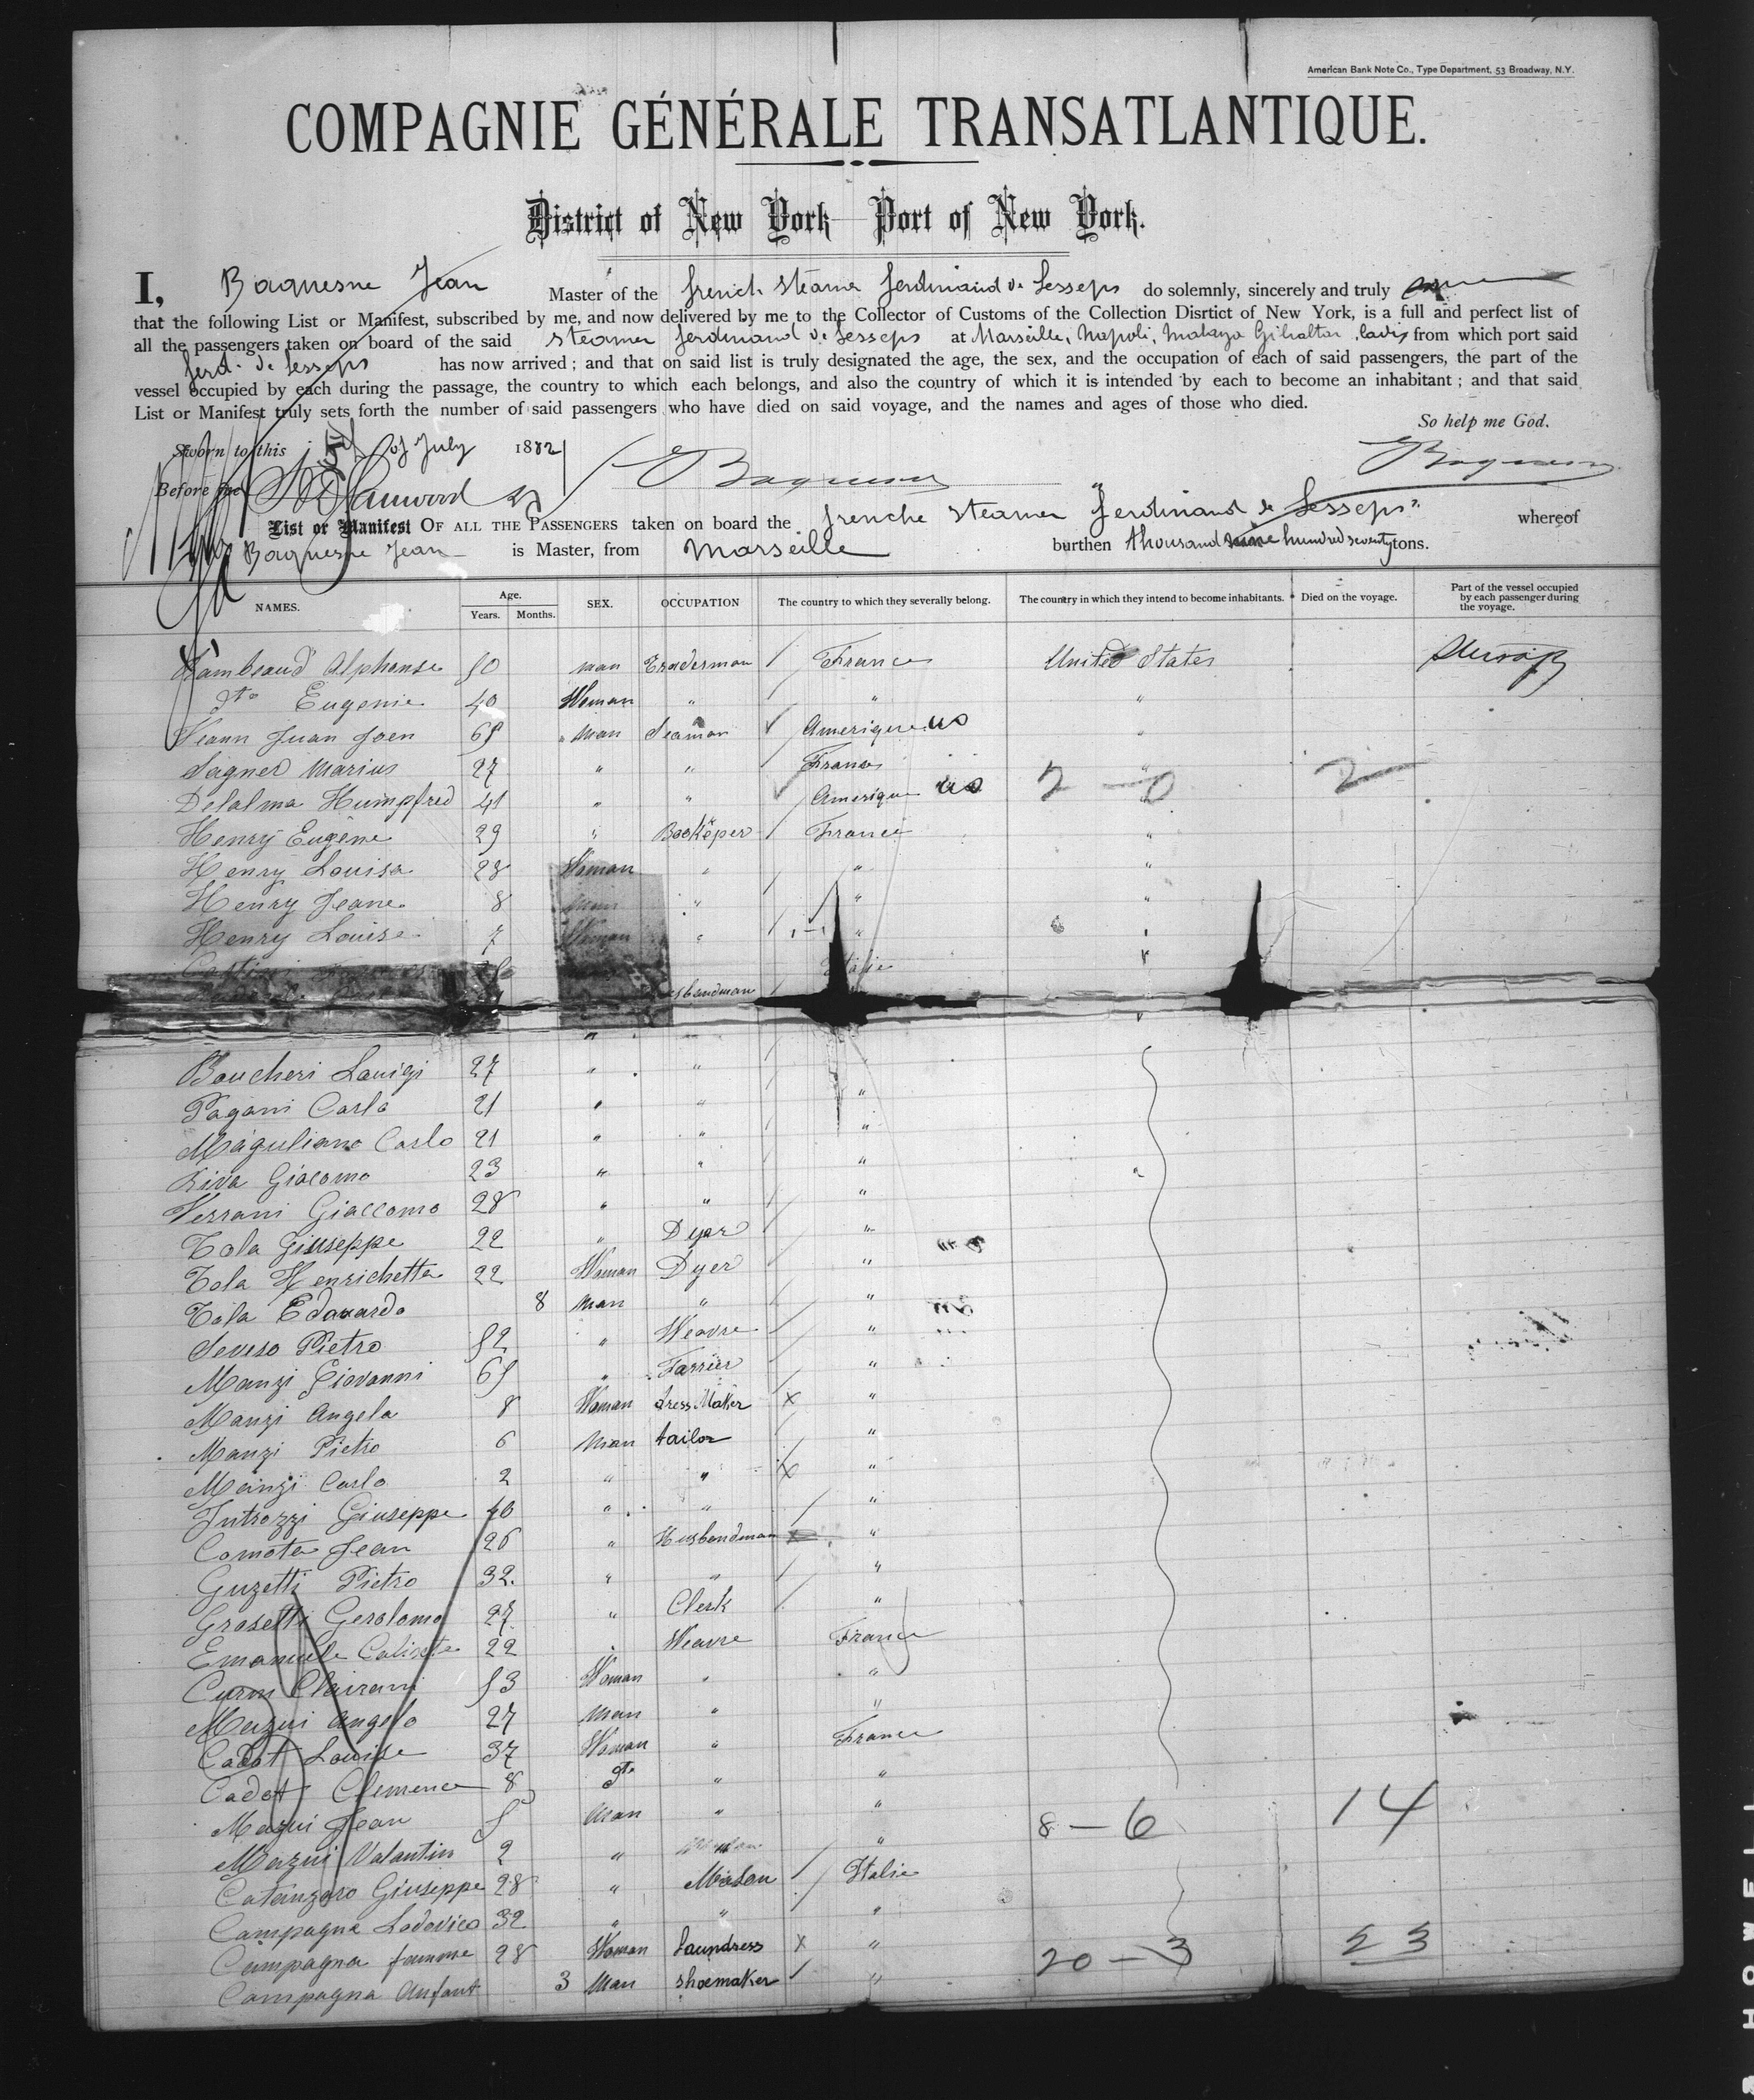 American Bank Note Co., Type Department, 53 Broadway, N.Y.
COMPAGNIE GÉNÉRALE TRANSATLANTIQUE.
District of New York—Port of New York.
I, Baquesne Jean Master of the french steamer ferdinand de Lesseps do solemnly, sincerely and truly
that the following List or Manifest, subscribed by me, and now delivered by me to the Collector of Customs of the Collection Disrtict of New York, is a full and perfect list of
all the passengers taken on board of the said steamer ferdinand de Lesseps at Marseille, Napoli, Malaga Gibraltar, Cadix from which port said
ferd. de Lesseps has now arrived; and that on said list is truly designated the age, the sex, and the occupation of each of said passengers, the part of the
vessel occupied by each during the passage, the country to which each belongs, and also the country of which it is intended by each to become an inhabitant; and that said
List or Manifest truly sets forth the number of said passengers who have died on said voyage, and the names and ages of those who died.
So help me God.
Sworn to this 5 of July 1882
Baquesne Baquesne
Before me
List or Manifest OF ALL THE PASSENGERS taken on board the frenche steamer "Ferdinand de Lesseps" whereof
Baquesne Jean is Master, from Marseille burthen thousand nine hundred seventy tons.
NAMES. Age. Years. Months. SEX. OCCUPATION The country to which they severally belong. The country in which they intend to become inhabitants. Died on the voyage. Part of the vessel occupied by each passenger during the voyage.
Alphonse 50 man Traderman France United States
dto Eugenie 40 Woman " " "
Juan Joen 65 man Seaman Amerique US "
Sagner Marius 27 " " France "
Delalma Humpfred 41 " " Amerique US 2 — 0 2
Henry Eugène 29 " Bookeper France "
Henry Louisa 28 Woman " " "
Henry Jeane 8 man " " "
Henry Louise 7 Woman " " "
Italie "
Boucheri Louigi 27 " "
Pagani Carlo 21 " " "
Maguliano Carlo 21 " " "
Riva Giacomo 23 " " " "
Verrani Giaccomo 28 " " "
Tola Giuseppe 22 " Dyer "
Tola Henrichetta 22 Woman Dyer "
Tola Edouardo 8 man " "
Seveso Pietro 52 " Weavre "
Manzi Giovanni 65 " Farrier "
Manzi Angela 8 Woman dress Maker x "
Manzi Pietro 6 man tailor "
Manzi Carlo 2 " " x "
Introzzi Giuseppe 40 " " "
Comota Jean 26 " Husbandman x "
Guzetti Pietro 32. " " "
Grosetti Gerolomo 27 " Clerk "
Emanuele Calixte 22 " Weavre France
Curni Clairani 53 Woman " "
Mazui Angelo 27 man " "
Cadot Louise 37 Woman " France
Cadot Clemence 8 dto " "
Mazui Jean 5 man " " 8 — 6 14
Mazui Valantin 2 " "
Catanzaro Giuseppe 28 " Mason Italie
Campagna Lodovico 32 " " "
Campagna femme 28 Woman Laundress x " 20 — 3 23
Campagna Anfant 3 Man shoemaker "